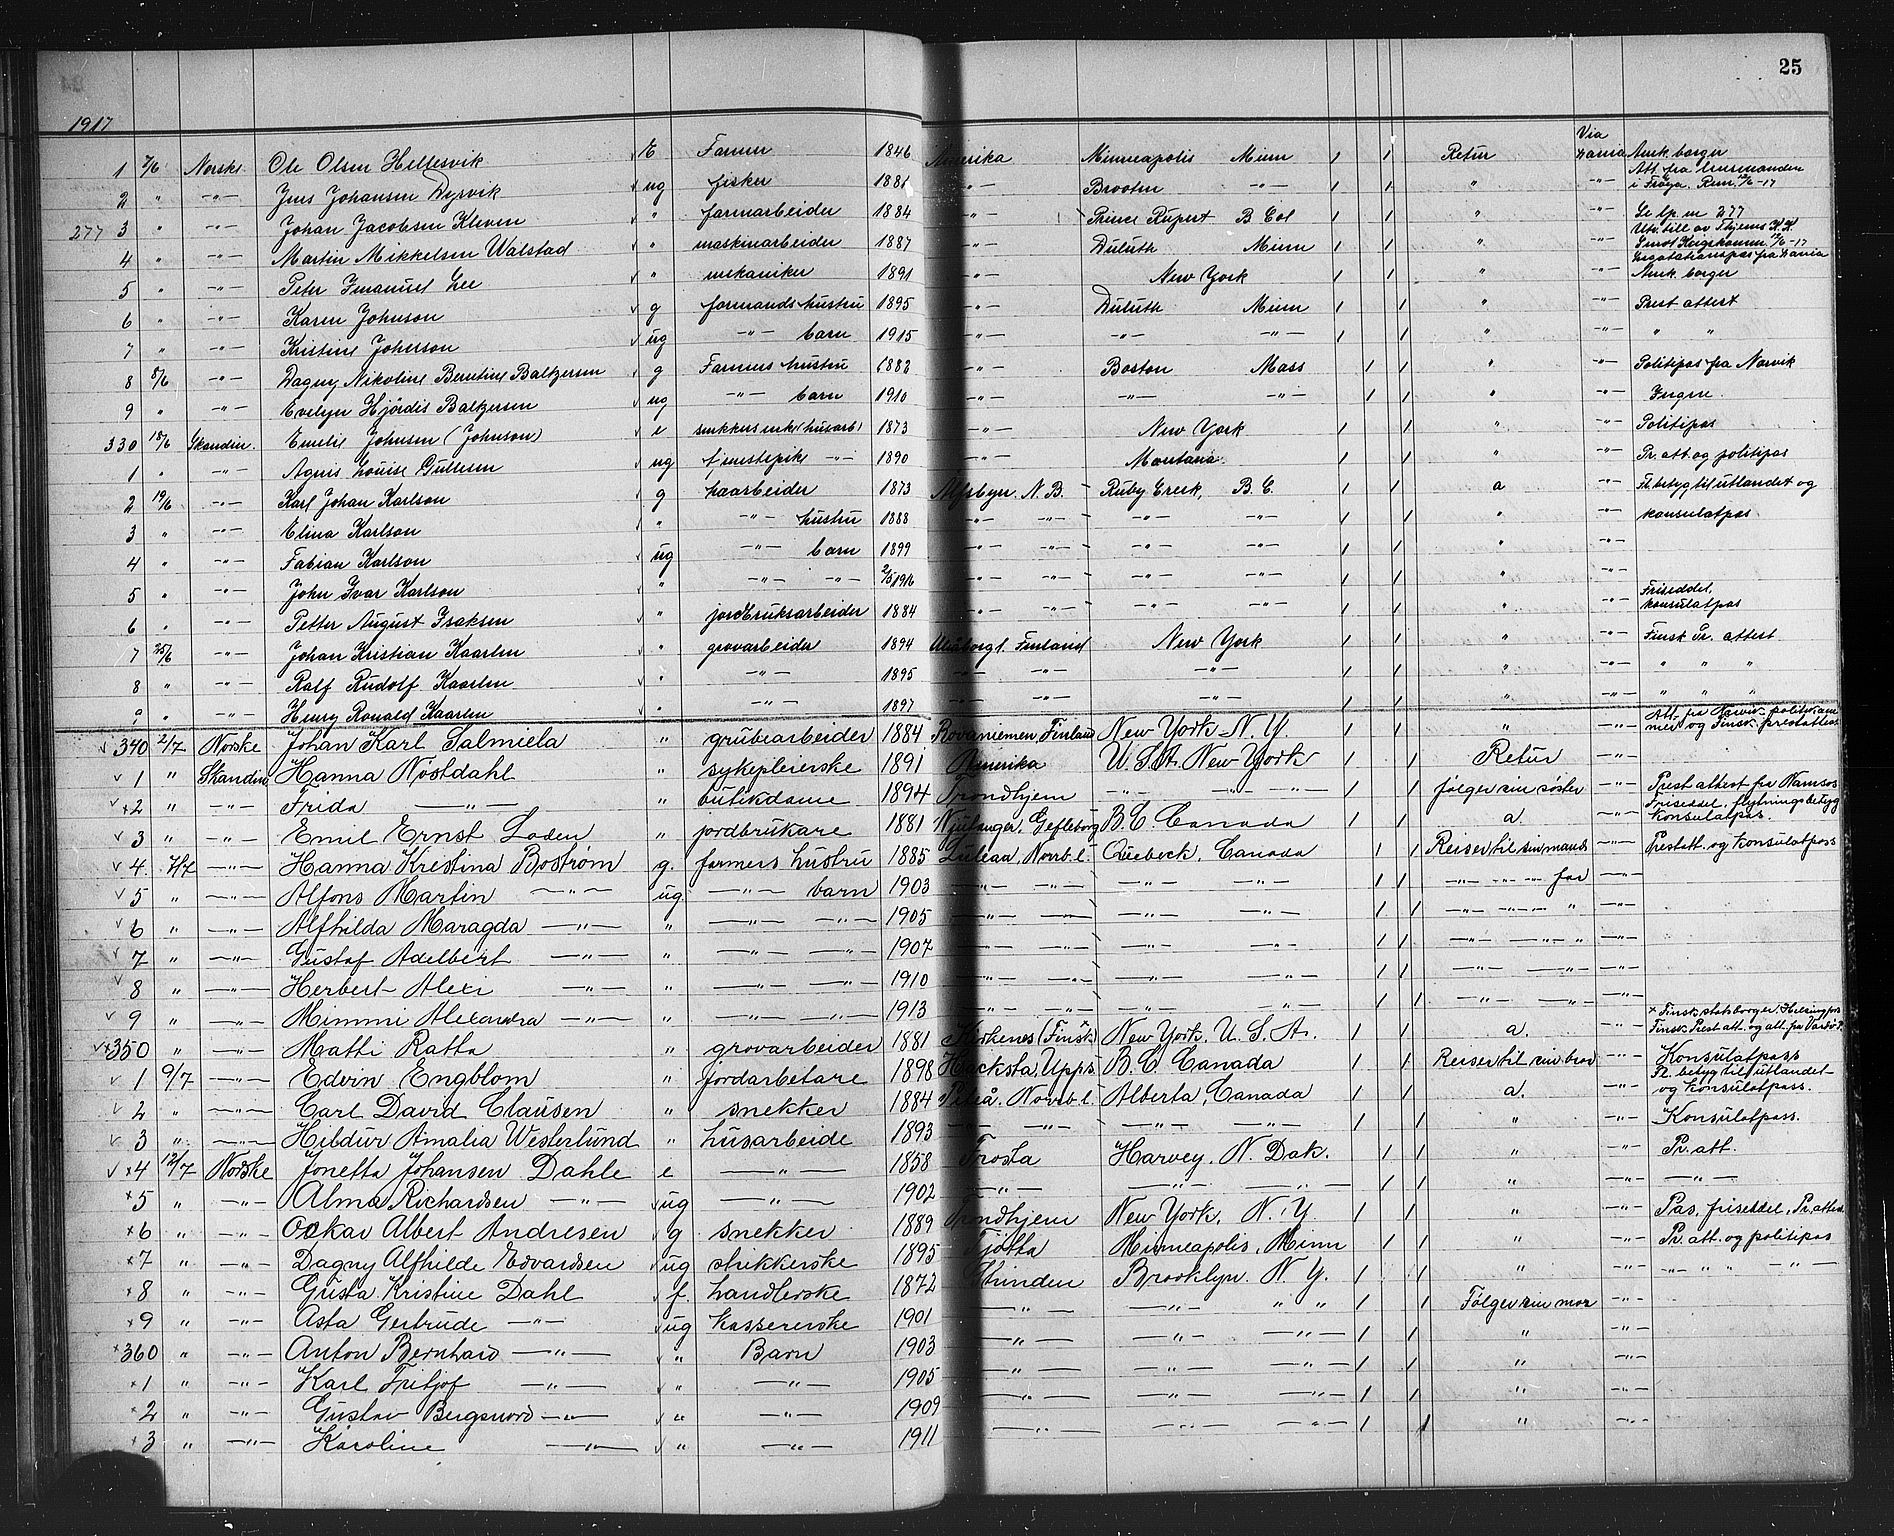 25
1917
Via
1 7/6 Norske Ole Olsen Hellesvik E Farmer 1846 Amerika Minneapolis Minn 1 1 Retur Dania Amk. borger
2 " -"- Jens Johansen Dyrvik ug fisker 1881 -"- Brooten -"- 1 1 " -"- Att. fra lensmanden i Frøya. Rem. 12/6-17
277 3 " -"- Johan Jacobsen Kleven " farmarbeider 1884 -"- Prince Rupert B Col 1 1 " -"- Se lp. nr 277
4 " -"- Martin Mikkelsen Walstad " maskinarbeider 1887 -"- Duluth Minn 1 1 " -"- Utr. till av Thjems K.K.
5 " -"- Peter Imanuel Lee " mekaniker 1891 -"- New York 1 1 " -"- Amk. borger
6 " -"- Karen Johnson g farmands hustru 1895 -"- Duluth Minn 1 1 " -"- Prest attest
7 " -"- Kristine Johnson ug -"- barn 1915 -"- -"- -"- 1 1 " -"- " "
8 8/6 -"- Dagny Nikoline Berntine Baltzersen g Farmers hustru 1882 -"- Boston Mass 1 1 " -"- Politipas fra Narvik
9 " -"- Evelyn Hjördis Baltzersen ug -"- barn 1910 -"- -"- -"- 1 1 " -"- Ingen.
330 18/6 Skandin. Emelie Johnsen (Johnson) e snekkers enke (husarb) 1873 -"- New York 1 1 " -"- Politipas
1 " -"- Agnes Louise Gullesen ug tjenestepike -"- 1890 -"- Montana. 1 1 " -"- Pr. att. og politipas
2 19/6 -"- Karl Johan Karlson g haarbeider 1873 Alfsbyn. N.B. Ruby Creek, B.C. 1 1 a -"- Fl. betyg til utlandet og
3 " -"- Elina Karlson " -"- hustru 1888 -"- -"- -"- -"- 1 1 " -"- konsulatpas.
4 " -"- Fabian Karlson ug -"- barn 1899 -"- -"- -"- -"- 1 1 " -"-
5 " -"- John Ivar Karlson " -"- -"- 2/5 1916 -"- -"- -"- -"- 1 1 " -"-
6 " -"- Petter August Isaksen " jordbruksarbeider 1884 -"- -"- -"- -"- 1 1 " -"- Friseddel, konsulatpas
7 25/6 -"- Johan Kristian Kaarlen " grovarbeider 1894 Uleåborgl. Finland New York 1 1 " -"- Finsk Pr. attest
8 " -"- Ralf Rudolf Kaarlen " -"- 1895 -"- -"- -"- 1 1 " -"- " " "
9 " -"- Henry Ronald Kaarlen " 1897 -"- -"- 1 1 " -"- " " "
340 2/7 Norske Johan Karl Salmiela " grubearbeider 1884 Rovaniemen, Finland New York N.Y. 1 1 " -"- Att. fra Narvik politikammer og Finsk prestattest
1 " Skandin Hanna Nöstdahl " sykepleierske 1891 Amerika U.S.A. New York 1 1 Retur -"-
x2 " -"- Frida -"- " butikdame 1894 Trondhjem -"- -"- 1 1 følger sin søster -"- Prest attest fra Namsos
3 " -"- Emil Ernst Loden " jordbrukare 1881 Njutånger, Gefleborg B.C. Canada 1 1 a. -"- Friseddel, flytningsbetyg Konsulatpas.
4 7/7 -"- Hanna Kristina Boström g. farmers hustru 1885 Luleaa, Norrb.l. Quebeck, Canada 1 1 Reiser til sin mand -"- Prestatt. og konsulatpass
5 " -"- Alfons Martin -"- ug -"- barn 1903 -"- -"- -"- -"- 1 1 -"- -"- far -"-
6 " -"- Alfhilda Maragda -"- " -"- -"- 1905 -"- -"- -"- -"- 1 1 -"- -"- " -"-
7 " -"- Gustaf Adelbert -"- " -"- -"- 1907 -"- -"- -"- 1 1 -"- -"- " -"-
8 " -"- Herbert Alexi -"- " -"- -"- 1910 -"- -"- -"- -"- 1 1 -"- -"- -"-
9 " -"- Mimmi Alexandra -"- " -"- -"- 1913 -"- -"- -"- -"- 1 1 -"- -"- -"-
x350 " -"- Matti Ratta " grovarbeider 1881 Kirkenes (Finsk) New York. U.S.A. 1 1 a. -"- x Finsk statsborger, Helsingfors Finsk Prest att. og att. fra Vardø P.
1 9/7 -"- Edvin Engblom " jordarbetare 1898 Hacksta, Upps. B.C. Canada 1 1 Reiser til sin bror -"- Konsulatpass
2 " -"- Carl David Clausen " snekker 1884 Piteå. Norrb.l. Alberta, Canada 1 1 a. -"- Fl. betyg til utlandet og konsulatpass.
3 " -"- Hildur Amalia Westerlund " husarbeide 1893 -"- -"- -"- -"- 1 1 " -"- Konsulatpass.
x4 12/7 Norske Jonetta Johansen Dahle e -"- 1858 Frosta Harvey. N. Dak. 1 1 " -"- Pr. att.
x5 " -"- Alma Richardsen -"- ug -"- 1902 -"- -"- -"- 1 1 " -"- -"-
x6 " -"- Oskar Albert Andresen g snekker 1889 Trondhjem New York, N.Y. 1 1 " -"- Pas, friseddel, Pr. attest
x7 " -"- Dagny Alfhilde Edvardsen ug strikkerske 1895 Tjøtta Minneapolis, Minn 1 1 " -"- Pr. att. og politipas
x8 " -"- Gusta Kristine Dahl f. handlerske 1872 Strinden Brooklyn. N.Y. 1 1 " -"- -"- " -"-
x9 " -"- Asta Gertrude -"- ug Kassererske 1901 -"- -"- " " 1 1 Følger sin mor -"-
x360 " -"- Anton Bernhard -"- " Barn 1903 -"- -"- -"- 1 1 " -"-
x1 " -"- Karl Fritjof -"- " -"- 1905 -"- -"- -"- 1 1 " -"-
x2 " -"- Gustav Bergsnord -"- " -"- 1909 -"- -"- -"- 1 1 " -"-
x3 " -"- Karoline -"- " -"- 1911 -"- -"- -"- 1 1 " -"-